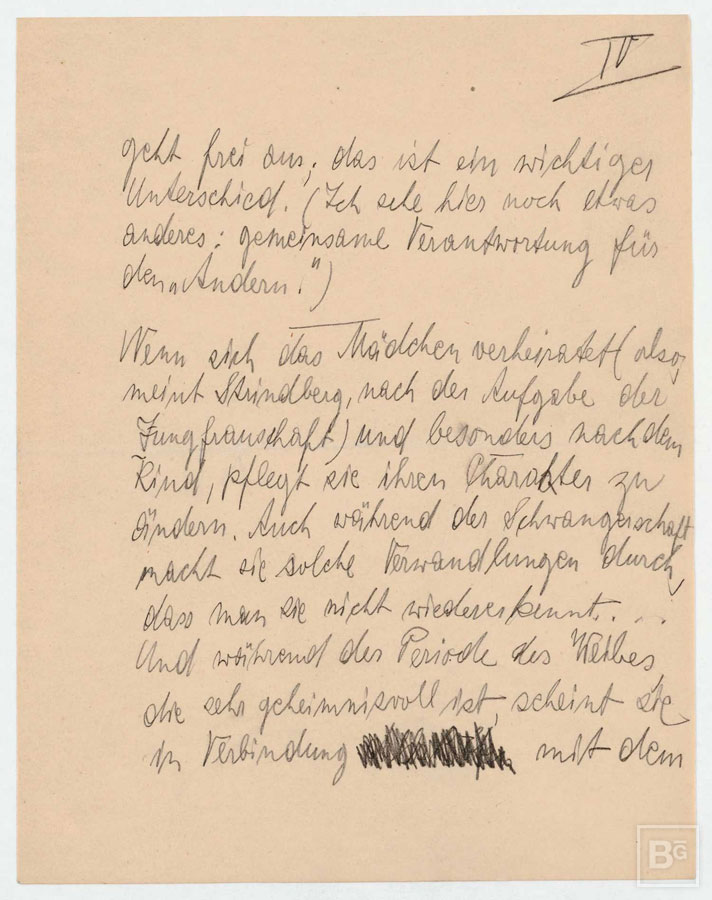 IV
geht frei aus; das ist ein wichtiger
Unterschied. (Ich sehe hier noch etwas
anderes: gemeinsame Verantwortung für
den „Andern.")
Wenn sich das Mädchen verheiratet (also,
meint Strindberg, nach der Aufgabe der
Jungfrauschaft) und besonders nach dem
Kind, pflegt sie ihren Charakter zu
ändern. Auch während der Schwangerschaft
macht sie solche Verwandlungen durch,
dass man sie nicht wiedererkennt. . .
Und während der Periode des Weibes
die sehr geheimnisvoll ist, scheint sie
in Verbindung mit dem
BG